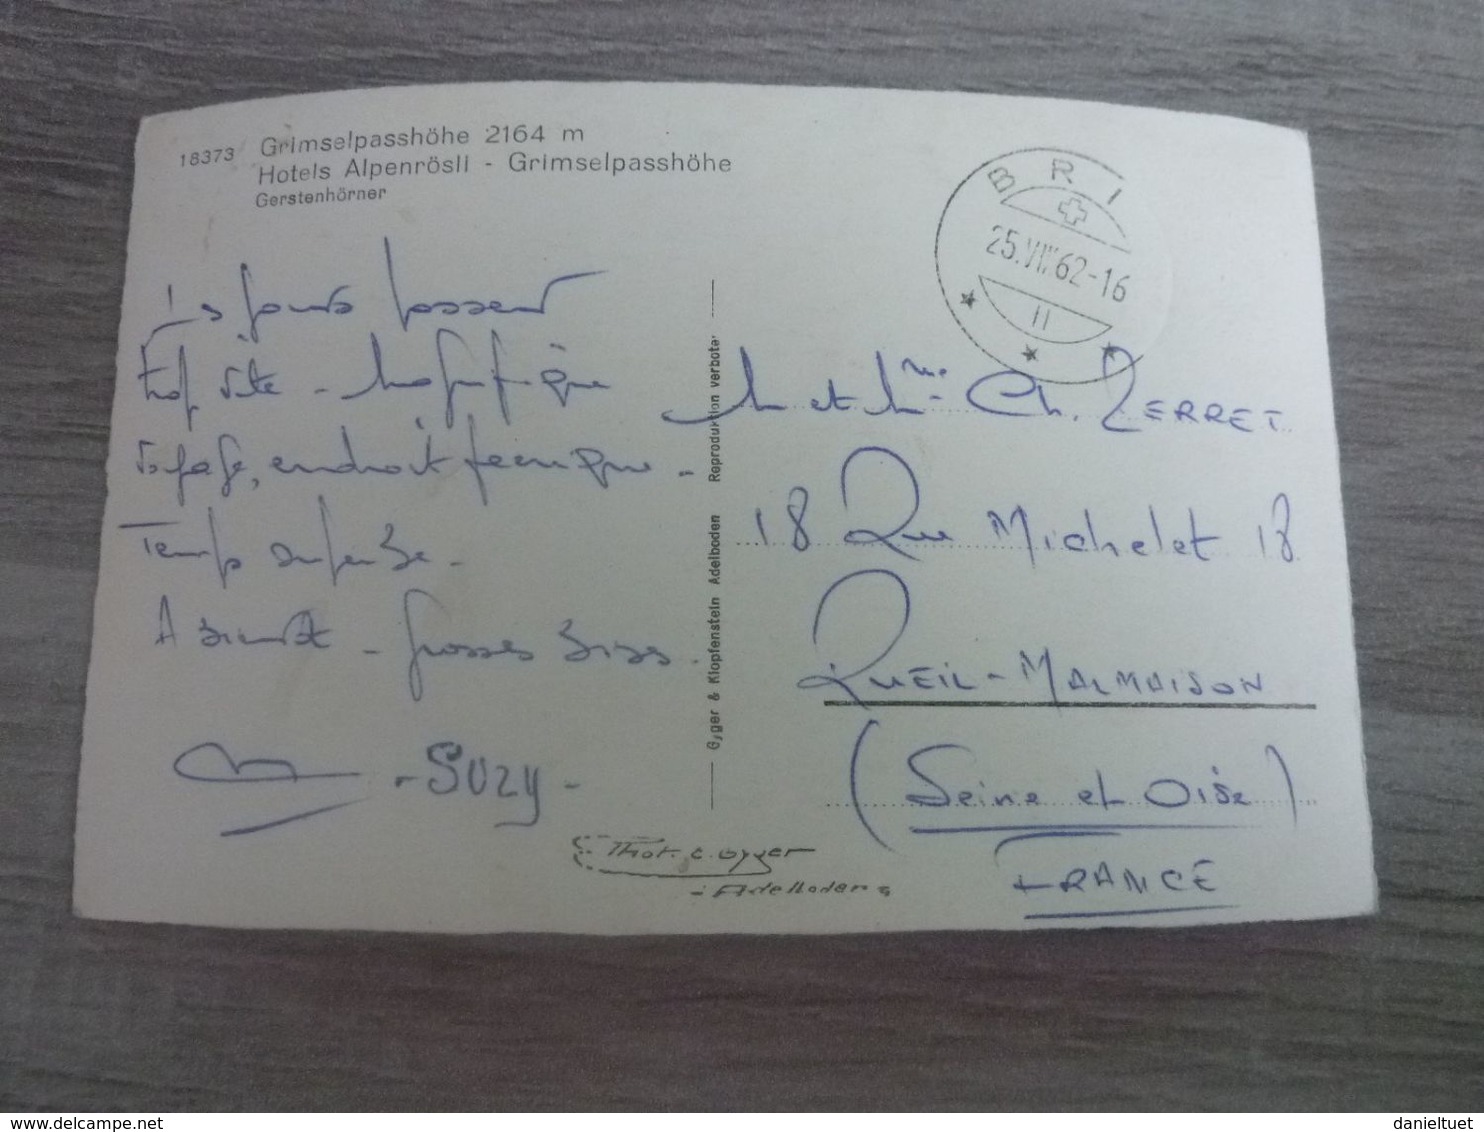 18373 Grimselpasshöhe 2164 m
Hotels Alpenrösli - Grimselpasshöhe
Gerstenhörner
BRI
25.VII.62-16
11
Les jours passent
trop vite - Magnifique
voyage, endroit féerique -
Temps superbe -
A bientôt - Grosses bises.
- Suzy -
Gyger & Klopfenstein Adelboden Reproduktion verboten
M et Mme Ch. ZERRET
18 Rue Michelet 18
RUEIL-MALMAISON
(Seine et Oise)
FRANCE
Phot. E. Gyger
- Adelboden
delcampe.net
danieltuet